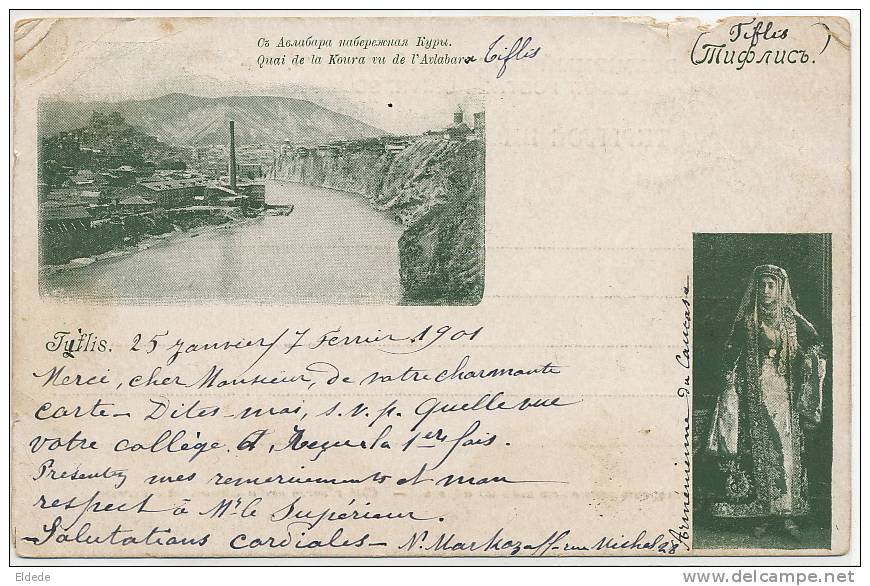 Съ Авлабара набережная Куры.
Quai de la Koura vu de l'Avlabara Tiflis
(Tiflis)
Тифлисъ.
Tiflis. 25 janvier/7 Fevrier 1901
Merci, cher Monsieur, de votre charmante
carte – Dites-moi, s.v.p. Quelle vue
votre collège a reçu la 1ère fois.
Présentez mes remerciements et mon
respect à Mr le Supérieur.
Salutations cordiales – N. Markozaff – rue Michel 28
Armenienne du Caucase
Eldede
www.delcampe.net